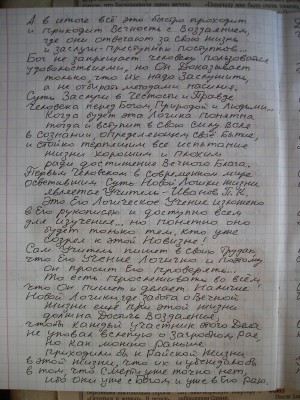 А в итоге всё это быстро проходит
и приходит Вечность с Воздаянием,
где они отвечают за свою жизнь
и заслуги-преступных поступков...
Бог не запрещает человеку пользоваться
удовольствиями, но Он доказывает
только, что их надо Заслужить,
а не отбирать методами насилия.
Суть Заслуги в Честности и Правде
Человека перед Богом, Природой и Людьми...
Когда будет эта Логика понятна
тогда и вступит в Свою Силу всем
в Сознании, определением своё Бытиё,
и стойко терпящим все испытание
жизни хорошим и плохим
ради достижение Вечного блага.
Первым Человеком в современном мире
осветившим Суть Новой Логики Жизни
является Учитель - Иванов П.К.
Это Его Логическое Учение изложено
в Его Рукописях и доступно всем
для изучения... но понятно оно
будет только тем, кто уже
созрел к этой Новизне!
Сам Учитель пишет в своих Трудах,
что Его Учение Логично и поэтому
он просит Его проверять...
То есть прослеживать во всём,
что Он пишет и делает Наличие
Новой Логики, где работа о Вечной
Жизни ещё при этой жизни
должна Достичь Воздаяния,
чтоб каждый участник этого Дела
не уповал вслепую о Загробном рае,
но как можно раньше
приходили бы к Райской Жизни
в этой жизни, что их и убеждало бы
в том, что Смерти уже точно нет,
ибо они уже с Богом и уже в Его раю.